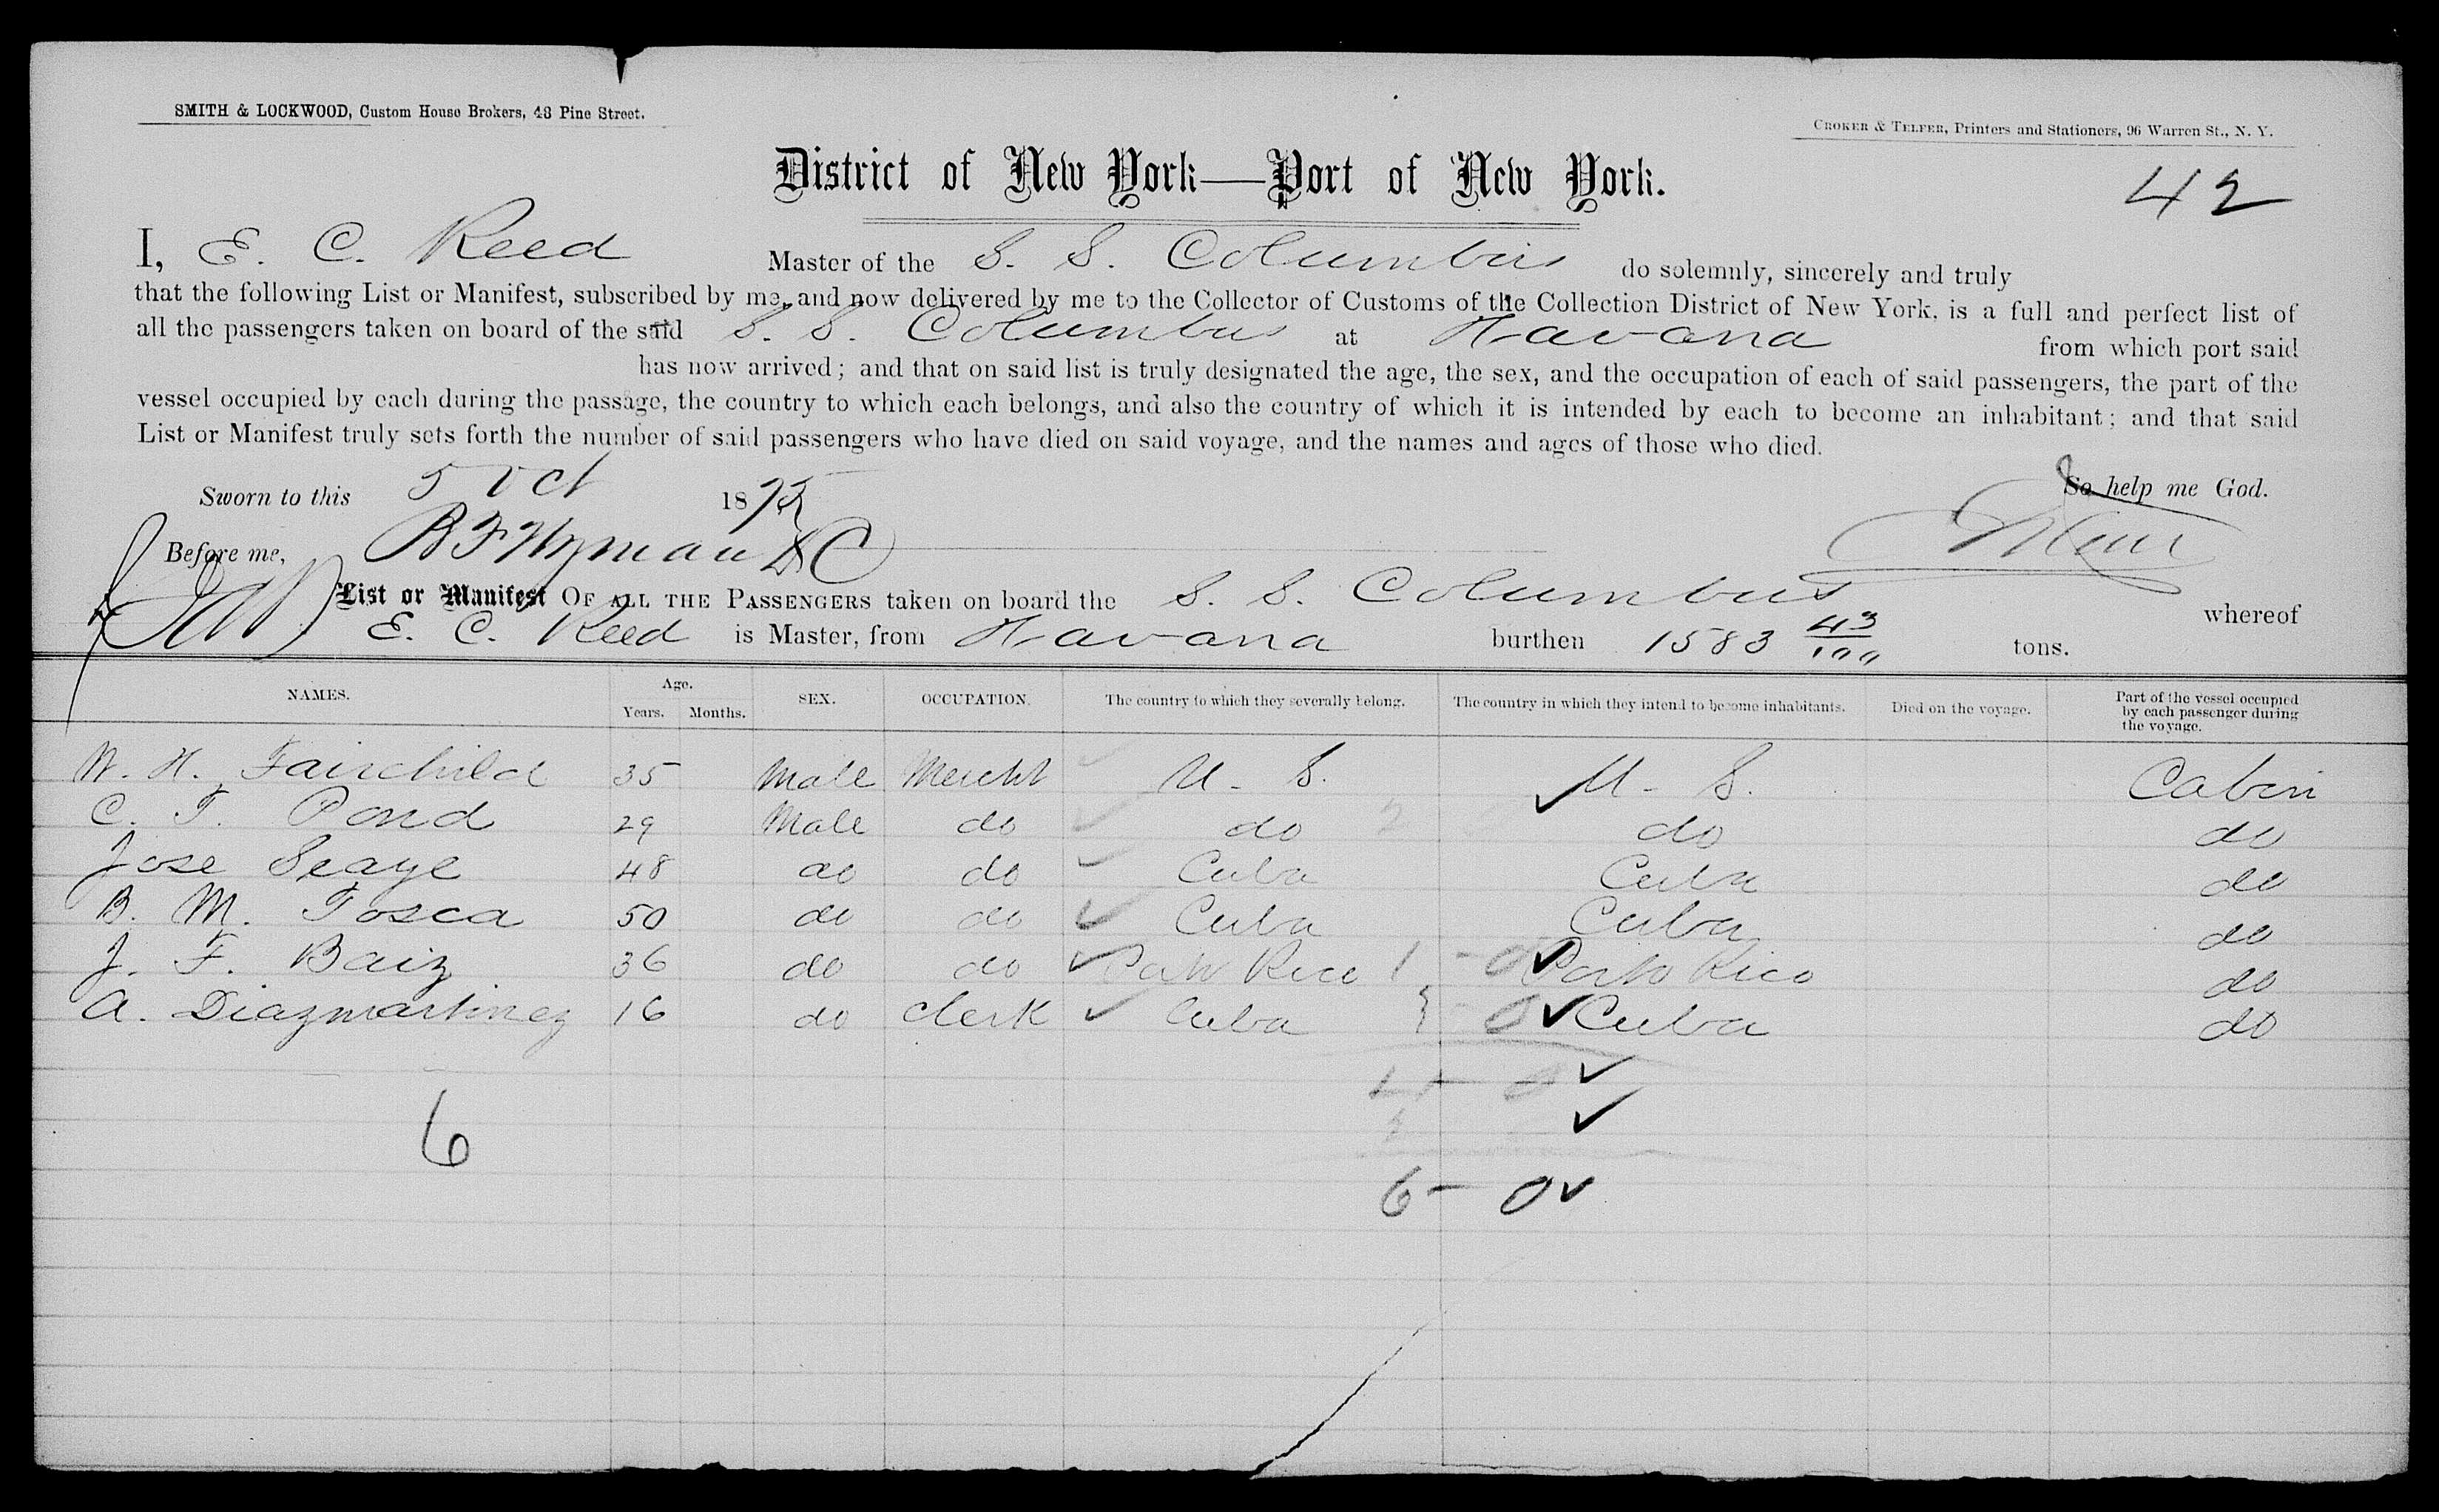 SMITH & LOCKWOOD, Custom House Brokers, 43 Pine Street.
CROKER & TELFER, Printers and Stationers, 96 Warren St., N. Y.
District of New York—Port of New York.
42
I, E. C. Reed Master of the S. S. Columbus do solemnly, sincerely and truly
that the following List or Manifest, subscribed by me, and now delivered by me to the Collector of Customs of the Collection District of New York, is a full and perfect list of
all the passengers taken on board of the said S. S. Columbus at Havana from which port said
has now arrived; and that on said list is truly designated the age, the sex, and the occupation of each of said passengers, the part of the
vessel occupied by each during the passage, the country to which each belongs, and also the country of which it is intended by each to become an inhabitant; and that said
List or Manifest truly sets forth the number of said passengers who have died on said voyage, and the names and ages of those who died.
Sworn to this 5 Oct 1875 So help me God.
Before me, B F Wyman DC
List or Manifest OF ALL THE PASSENGERS taken on board the S. S. Columbus whereof
E. C. Reed is Master, from Havana burthen 1583 43/100 tons.
NAMES. Age. Years. Months. SEX. OCCUPATION. The country to which they severally belong. The country in which they intend to become inhabitants. Died on the voyage. Part of the vessel occupied by each passenger during the voyage.
W. H. Fairchild 35 Male Mercht U. S. U. S. Cabin
C. T. Pond 29 Male do do 2 do do
Jose Seaye 48 do do Cuba Cuba do
B. M. Tosca 50 do do Cuba Cuba do
J. F. Baiz 36 do do Porto Rico 1 - 0 Porto Rico do
A. Diazmartinez 16 do Clerk Cuba 3 0 Cuba do
6
6 - 0